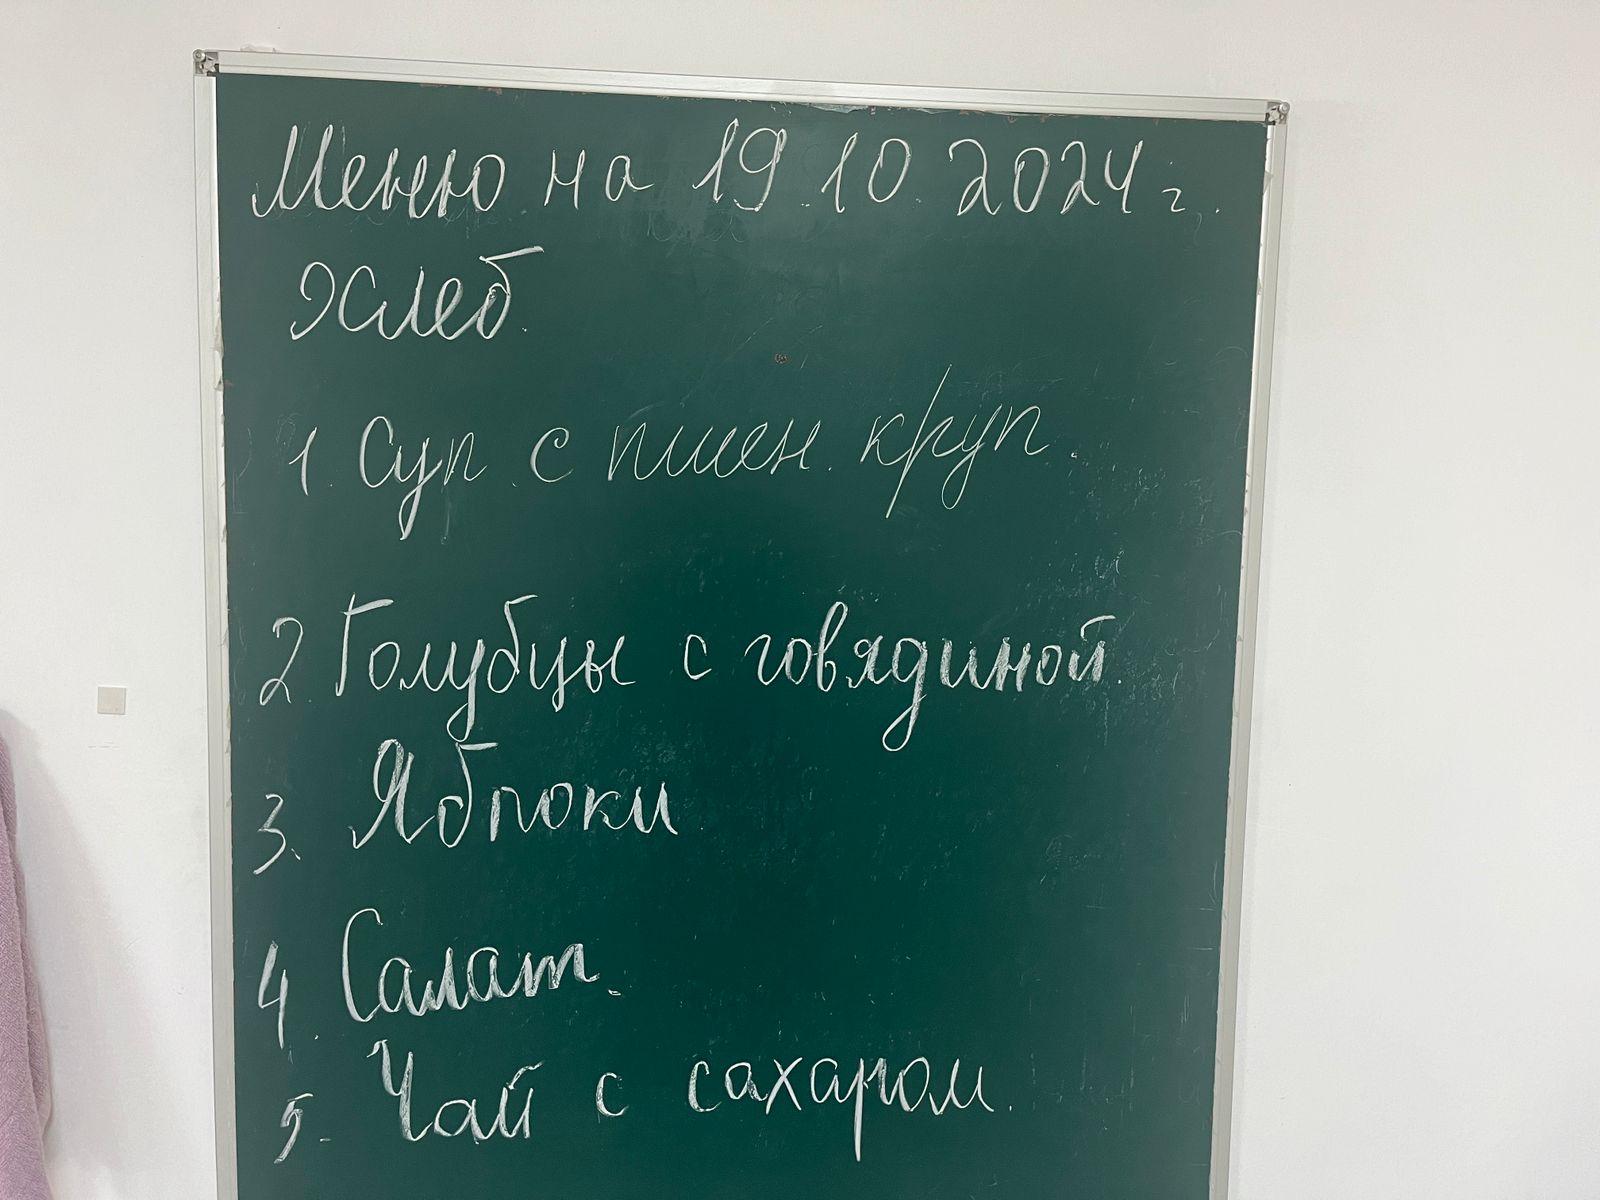 Меню на 19.10.2024 г.
Хлеб.
1. Суп с пшен. круп.
2. Голубцы с говядиной.
3. Яблоки
4. Салат.
5. Чай с сахаром.